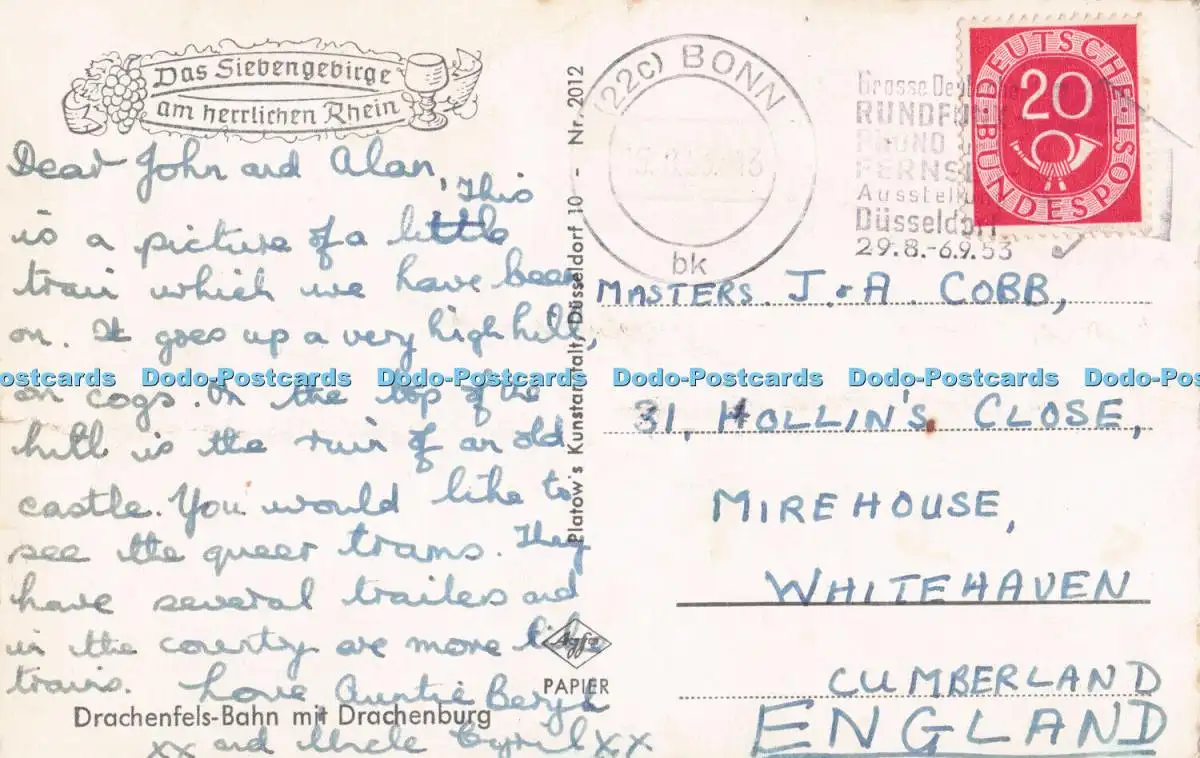 Das Siebengebirge
am herrlichen Rhein
Dear John and Alan, This
is a picture of a little
train which we have been
on. It goes up a very high hill,
on cogs. On the top of the
hill is the ruin of an old
castle. You would like to
see the queer trams. They
have several trailers and
in the country are more like
trains. Love Auntie Beryl
xx and Uncle Cyril xx
Drachenfels-Bahn mit Drachenburg
Platow's Kunstanstalt, Düsseldorf 10 - Nr. 2012
Agfa
PAPIER
(22c) BONN
bk
Grosse
RUNDF
PHONO
FERNS
Ausstellun
Düsseldorf
29.8.-6.9.53
DEUTSCHE
BUNDESPOST
20
MASTERS. J. & A. COBB,
31, HOLLIN'S CLOSE,
MIREHOUSE,
WHITEHAVEN
CUMBERLAND
ENGLAND
Dodo-Postcards Dodo-Postcards Dodo-Postcards Dodo-Postcards Dodo-Postcards